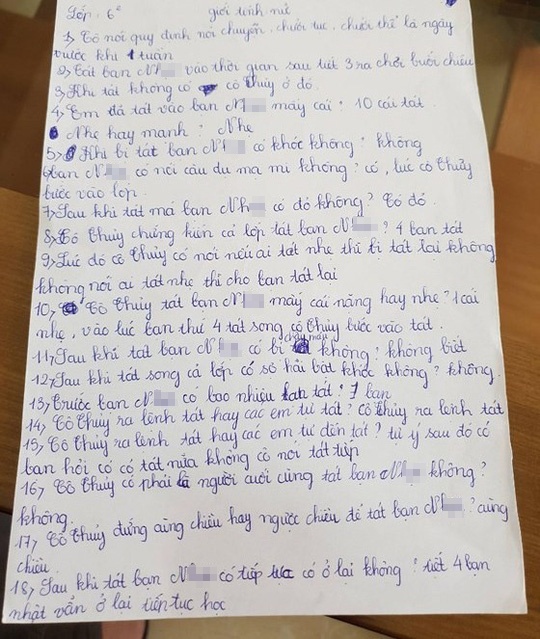 Lớp: 6² giới tính nữ
1, Cô nói quy định nói chuyện, chửi tục, chửi thề là ngày
trước khi 1 tuần
2, Tát bạn Nh vào thời gian sau tiết 3 ra chơi buổi chiều
3, Khi tát không có cô Thủy ở đó.
4, Em đã tát vào bạn N mấy cái? 10 cái tát
Nhẹ hay mạnh? Nhẹ
5, Khi bị tát bạn N có khóc không? không
6, bạn N có nói câu du ma mi không? có, lúc cô Thủy
bước vào lớp
7, Sau khi tát má bạn Nh có đỏ không? Có đỏ
8, Cô Thủy chứng kiến cả lớp tát bạn N? 4 bạn tát
9, Lúc đó cô Thủy có nói nếu ai tát nhẹ thì bị tát lại không
không nói ai tát nhẹ thì cho bạn tát lại
10, Cô Thủy tát bạn N mấy cái nặng hay nhẹ? 1 cái
nhẹ, vào lúc bạn thứ 4 tát song cô Thủy bước vào tát.
11, Sau khi tát bạn N có bị chảy máu không? không biết
12, Sau khi tát song cả lớp có sợ hãi bật khóc không? không.
13, Trước bạn N có bao nhiêu bạn tát? 7 bạn
14, Cô Thủy ra lệnh tát hay các em tự tát? Cô Thủy ra lệnh tát
15, Cô Thủy ra lệnh tát hay các em tự đến tát? tự ý sau đó có
bạn hỏi cô có tát nữa không cô nói tát tiếp
16, Cô Thủy có phải là người cuối cùng tát bạn N không?
không.
17, Cô Thủy đứng cùng chiều hay ngược chiều để tát bạn N? cùng
chiều.
18, Sau khi tát bạn N có tiếp tục có ở lại không? tiết 4 bạn
nhật vẫn ở lại tiếp tục học